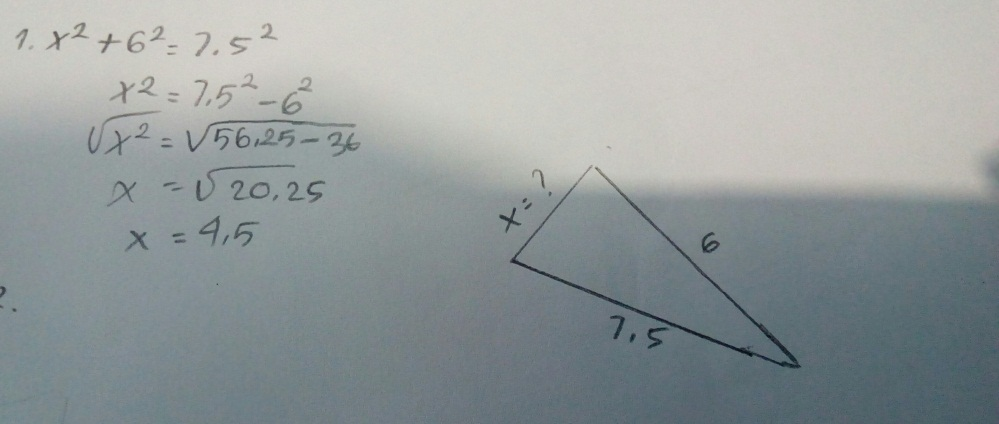 1. x² + 6² = 7.5²
x² = 7.5² - 6²
√x² = √56.25 - 36
x = √20.25
x = 4.5
x = ?
6
7.5
2.